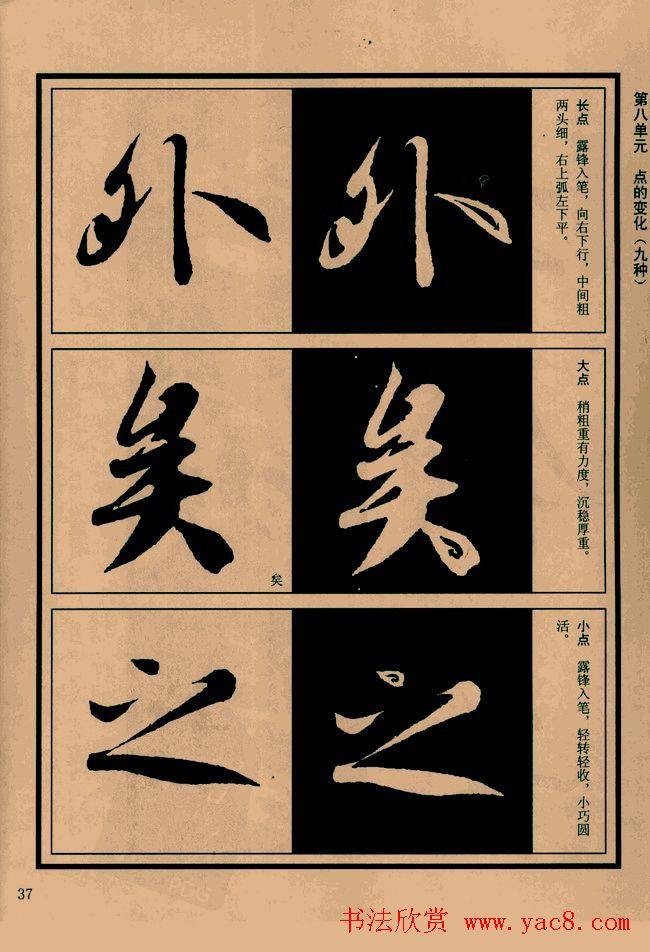 第八单元　点的变化（九种）
长点　露锋入笔，向右下行，中间粗
两头细，右上弧左下平。
外
外
大点　稍粗重有力度，沉稳厚重。
矣
矣
矣
小点　露锋入笔，轻转轻收，小巧圆
活。
之
之
37
书法欣赏 www.yac8.com